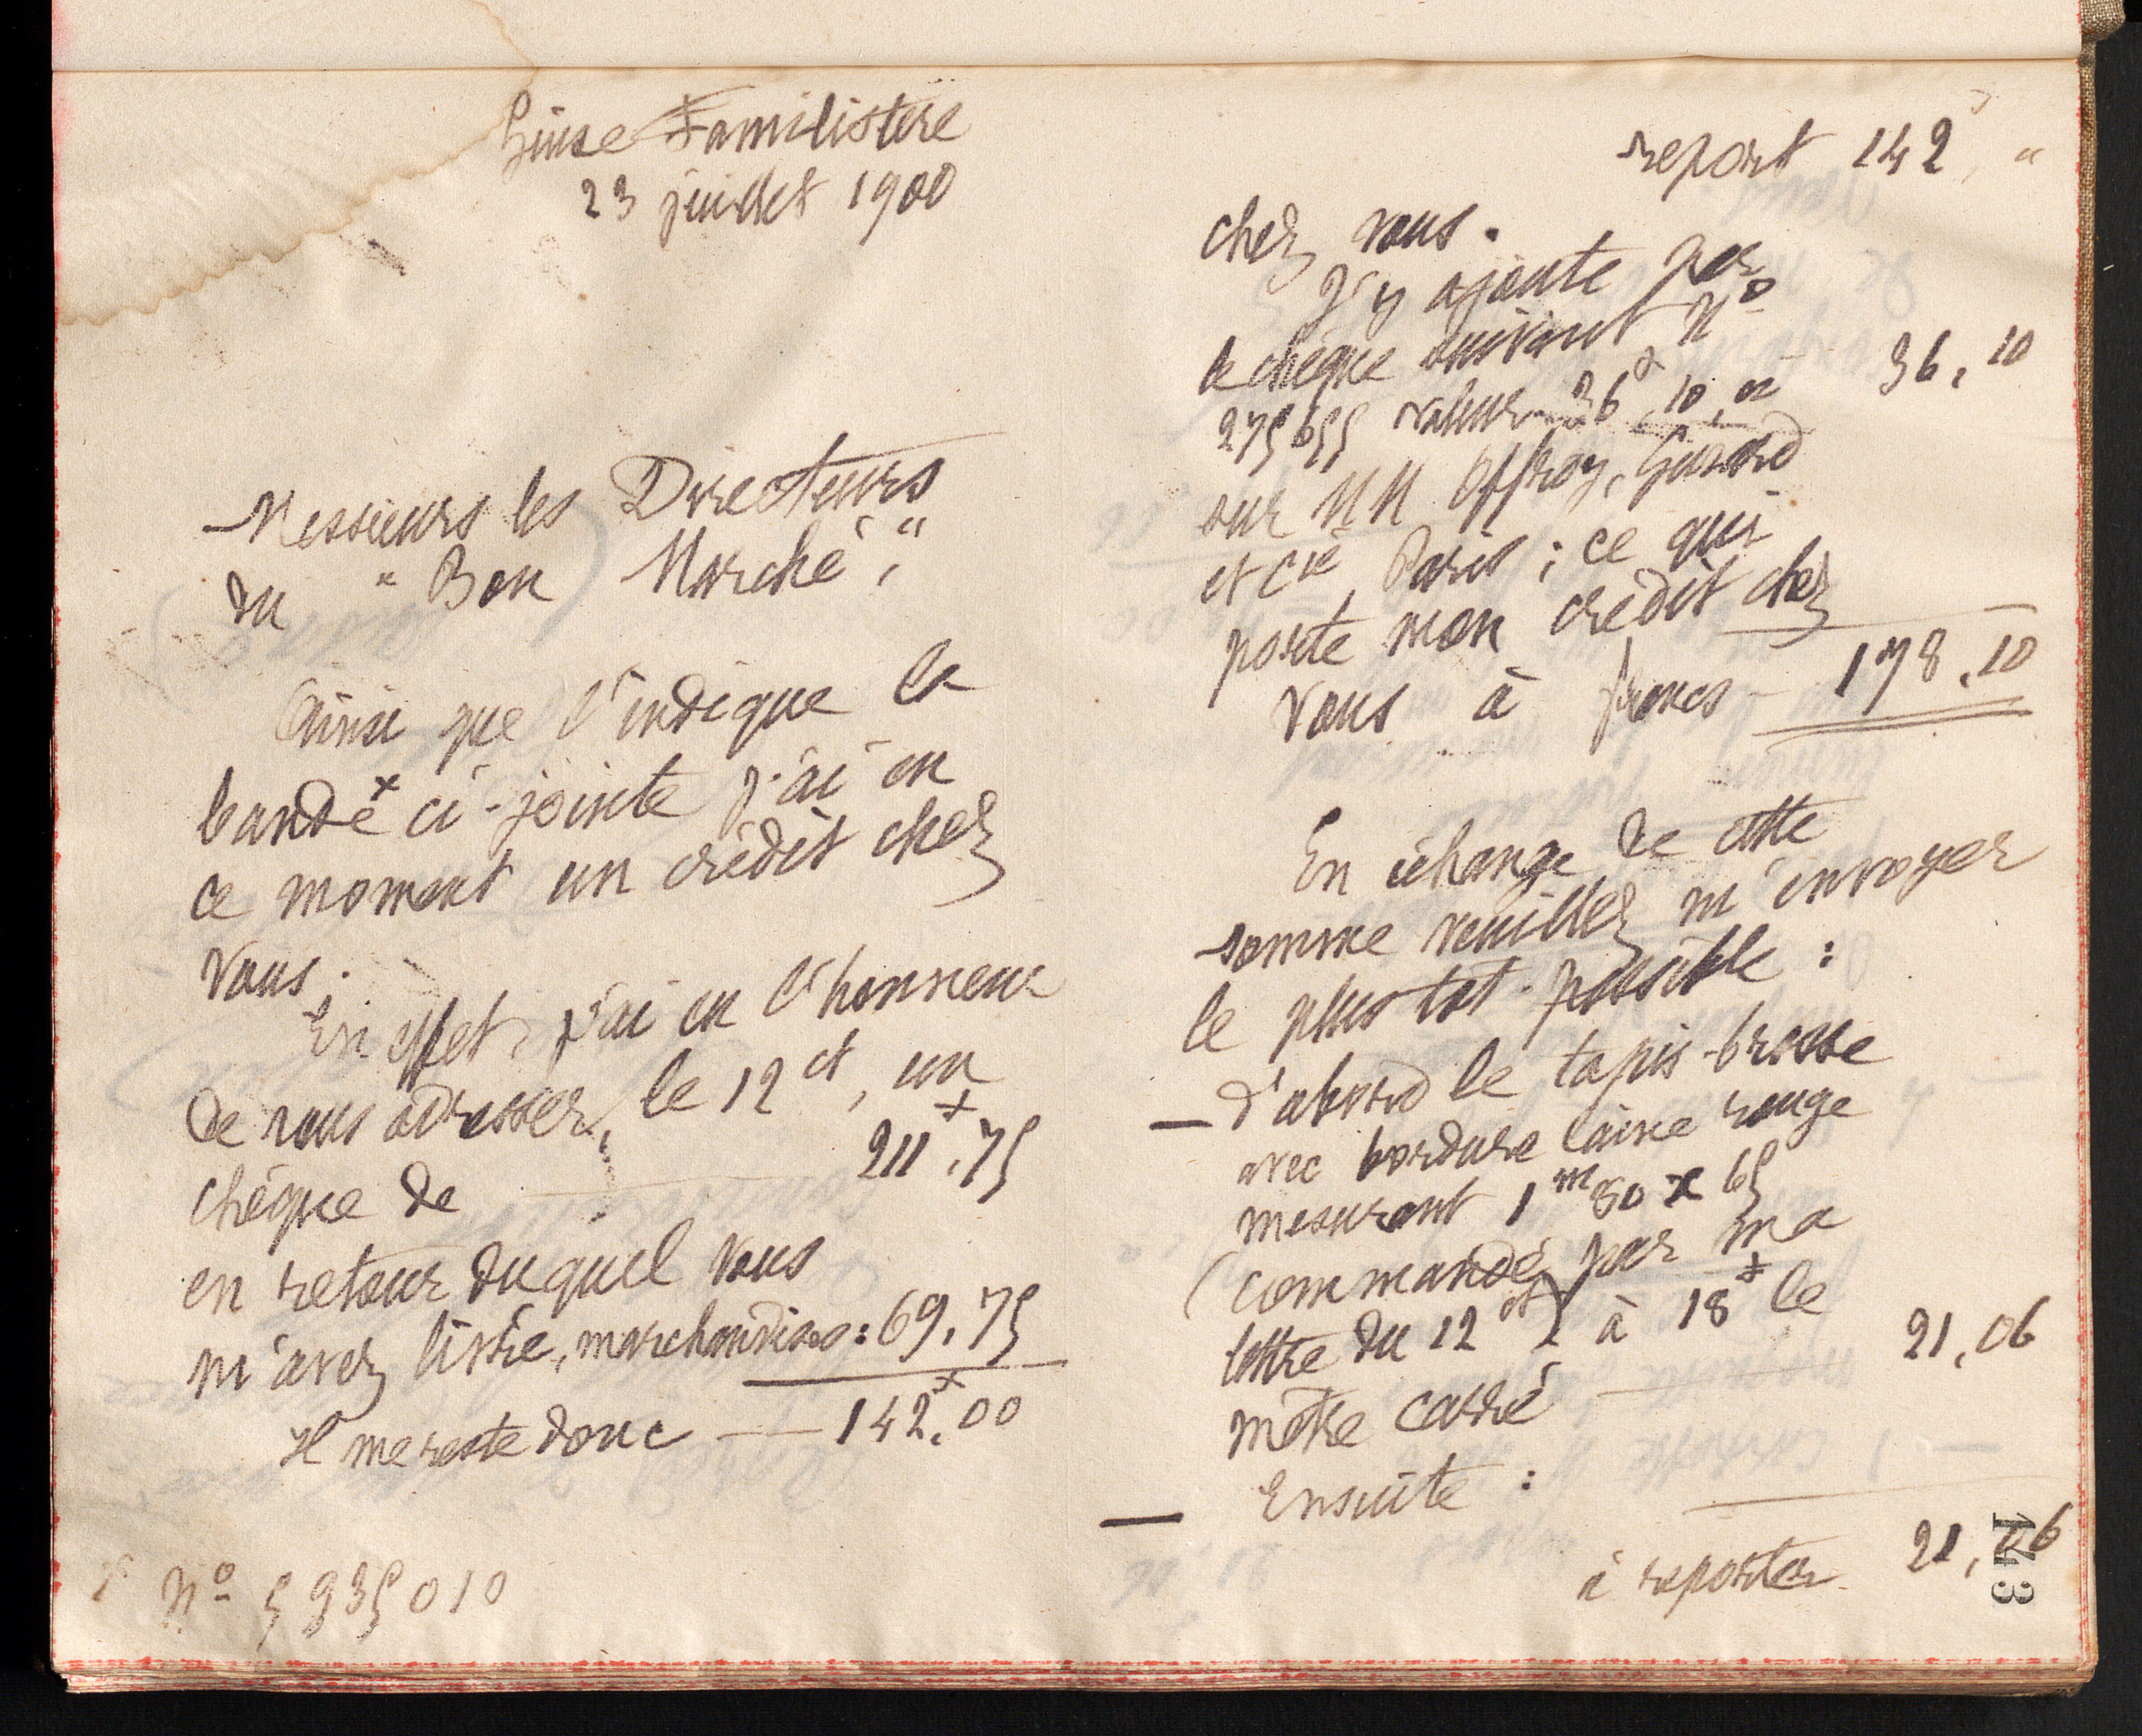 Guise Familistère
23 juillet 1900
Messieurs les Directeurs
du "Bon Marché",
Ainsi que l'indique la
bande x ci-jointe j'ai en
ce moment un crédit chez
vous.
En effet, j'ai eu l'honneur
de vous adresser, le 12 ct, un
chèque de 211f,75
en retour duquel vous
m'avez livré, marchandises: 69,75
Il me reste donc — 142f,00
N° 5935010
report 142, "
chez vous.
J'y ajoute par
le chèque suivant N°
275655 valeur 36f,10, 36,10
sur MM Offroy, Guiard
et Cie, Paris; ce qui
porte mon crédit chez
vous à francs — 178,10
En échange de cette
somme veuillez m'envoyer
le plus tôt possible :
— d'abord le tapis-brosse
avec bordure laine rouge
mesurant 1m80 x 65
(commandé par ma
lettre du 12 ct) à 18f le
mètre carré — 21,06
— Ensuite :
à reporter 21,06
143